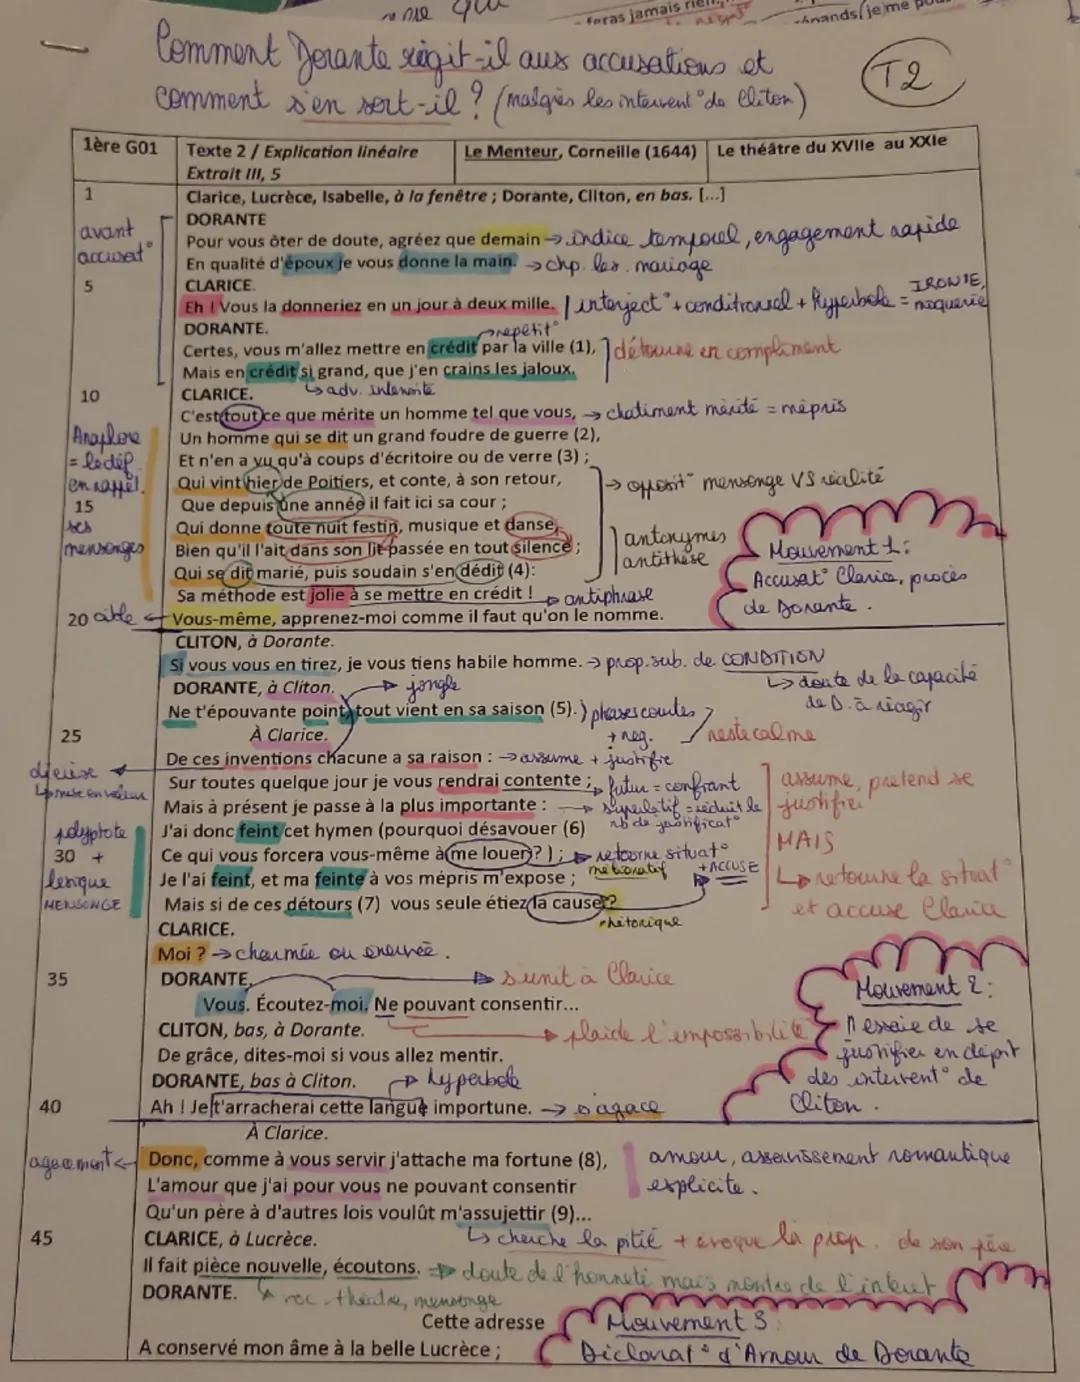 feras jamais rien
Comment Dorante réagit-il aux accusations et
comment s'en sort-il ? (malgrès les intervent° de Cliton)
T2
1ère G01
Texte 2 / Explication linéaire
Extrait III, 5
Le Menteur, Corneille (1644)
Le théâtre du XVIIe au XXIe
1
Clarice, Lucrèce, Isabelle, à la fenêtre ; Dorante, Cliton, en bas. [...]
avant
accusat°
DORANTE
Pour vous ôter de doute, agréez que demain → indice temporel, engagement rapide
En qualité d'époux je vous donne la main. → chp. lex. mariage
5
CLARICE.
Eh ! Vous la donneriez en un jour à deux mille. | interject° + conditionnel + hyperbole = IRONIE, moquerie
DORANTE.
→ répétit°
Certes, vous m'allez mettre en crédit par la ville (1), ] détourne en compliment
Mais en crédit si grand, que j'en crains les jaloux.
10
CLARICE.
↳ adv. intensité
C'est tout ce que mérite un homme tel que vous, → chatiment mérité = mépris
Anaphore
= le déf.
en rappel.
ses
mensonges
Un homme qui se dit un grand foudre de guerre (2),
Et n'en a vu qu'à coups d'écritoire ou de verre (3) ;
Qui vint hier de Poitiers, et conte, à son retour,
→ opposit° mensonge VS réalité
15
Que depuis une année il fait ici sa cour ;
Qui donne toute nuit festin, musique et danse,
Bien qu'il l'ait dans son lit passée en tout silence ;
antonymes
antithèse
Qui se dit marié, puis soudain s'en dédit (4):
Sa méthode est jolie à se mettre en crédit ! → antiphrase
Mouvement 1 :
Accusat° Clarice, procès
de Dorante.
20
cible ← Vous-même, apprenez-moi comme il faut qu'on le nomme.
CLITON, à Dorante.
Si vous vous en tirez, je vous tiens habile homme. → prop. sub. de CONDITION
↳ doute de la capacité
de D. à réagir
DORANTE, à Cliton. → jongle
Ne t'épouvante point, tout vient en sa saison (5). ) phrases courtes
+ neg.
reste calme
25
À Clarice.
De ces inventions chacune a sa raison : → assume + justifie
diérèse
↳ mise en valeur
Sur toutes quelque jour je vous rendrai contente ; → futur = confiant
Mais à présent je passe à la plus importante : → superlatif = réduit le
nb de justificat°
assume, prétend se
justifier
MAIS
↳ retourne la situat°
et accuse Clarice
polyptote
+
lexique
MENSONGE
J'ai donc feint cet hymen (pourquoi désavouer (6)
30
Ce qui vous forcera vous-même à me louer ? ) ; → retourne situat°
mélioratif + ACCUSE
Je l'ai feint, et ma feinte à vos mépris m'expose ;
Mais si de ces détours (7) vous seule étiez la cause ?
rhétorique
CLARICE.
Moi ? → charmée ou énervée.
35
DORANTE,
→ s'unit à Clarice
Vous. Écoutez-moi. Ne pouvant consentir...
CLITON, bas, à Dorante.
→ plaide l'impossibilité
De grâce, dites-moi si vous allez mentir.
Mouvement 2 :
Il essaie de se
justifier en dépit
des intervent° de
Cliton.
DORANTE, bas à Cliton. → hyperbole
40
Ah ! Je t'arracherai cette langue importune. → s'agace
À Clarice.
agacement ← Donc, comme à vous servir j'attache ma fortune (8),
L'amour que j'ai pour vous ne pouvant consentir
amour, asservissement romantique
explicite.
Qu'un père à d'autres lois voulût m'assujettir (9)...
↳ cherche la pitié + évoque la prop. de son père
45
CLARICE, à Lucrèce.
Il fait pièce nouvelle, écoutons. → doute de l'honneté mais montre de l'intérêt
DORANTE.
voc. théâtre, mensonge
Cette adresse
A conservé mon âme à la belle Lucrèce ;
Mouvement 3 :
Diclarat° d'Amour de Dorante